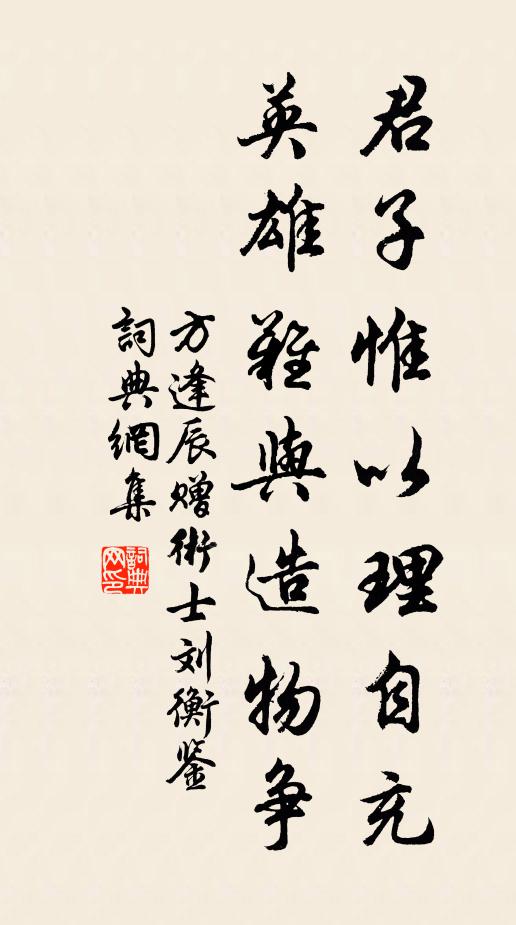 君子惟以理自充
英雄難與造物争
方逢辰赠術士刘衡鉴
詞典網集
詞典网印